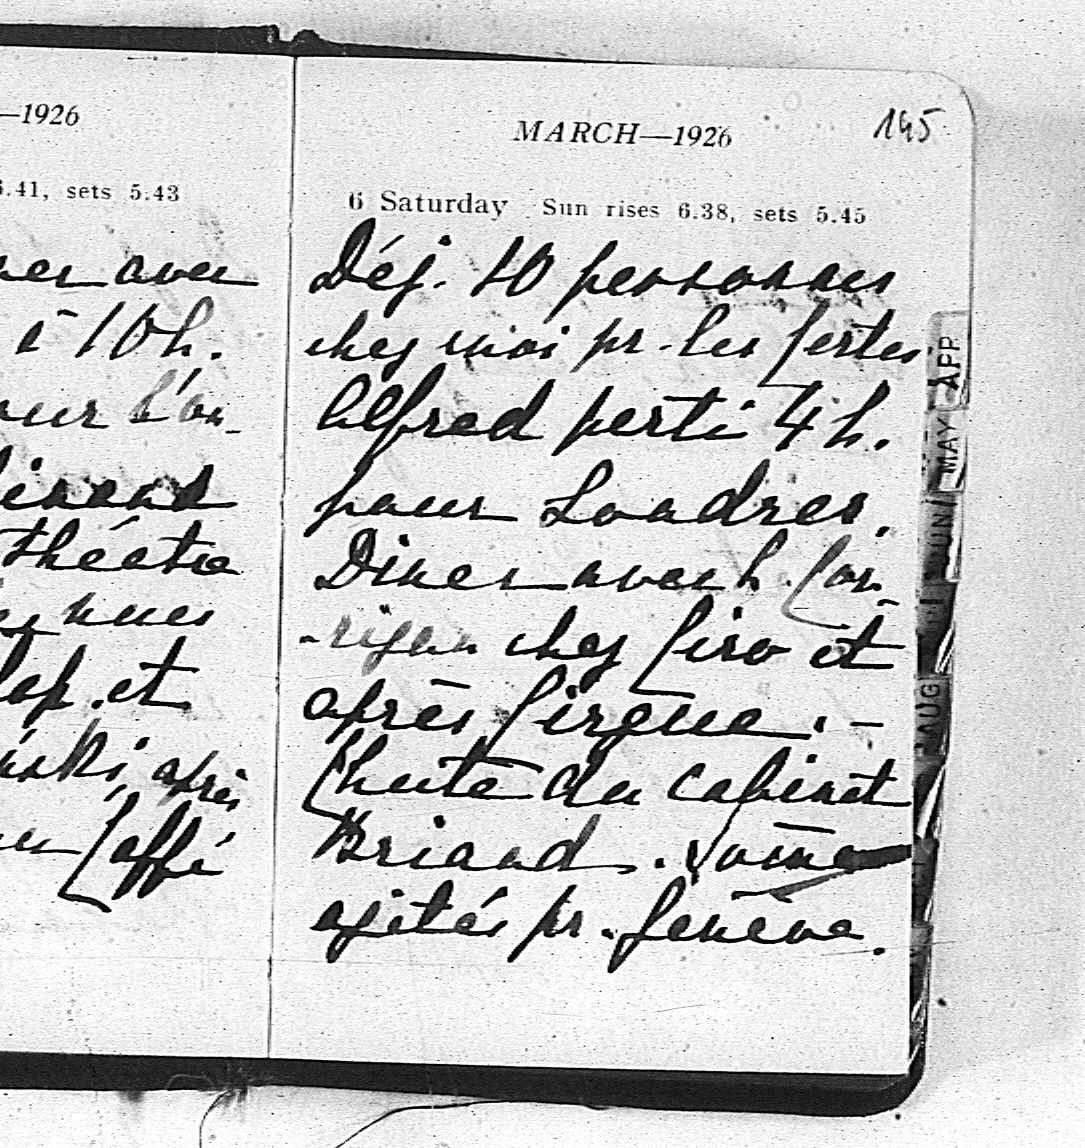 —1926
6.41, sets 5.43
avec
à 10h.
l'on-
théâtre
nues
et
après
Caffé
MARCH—1926
195
6 Saturday Sun rises 6.38, sets 5.45
Déj. 10 personnes
chez moi pr. les Certes
Alfred parti 4 h.
pour Londres.
Diner avec h. Cor-
-rigan chez Ciro et
après Cirque. —
Chute du cabinet
Briand. Somes
agités pr. Genève.
APP
MAY
JUN
AUG